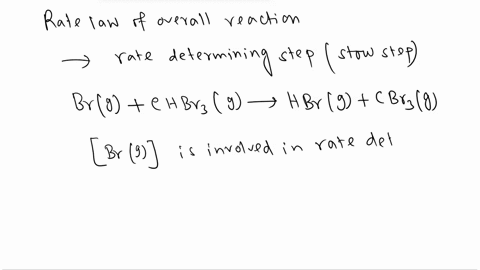 Rate law of overall reaction
→ rate determining step (slow step)
Br(g) + CHBr₃(g) → HBr(g) + CBr₃(g)
[Br(g)] is involved in rate det